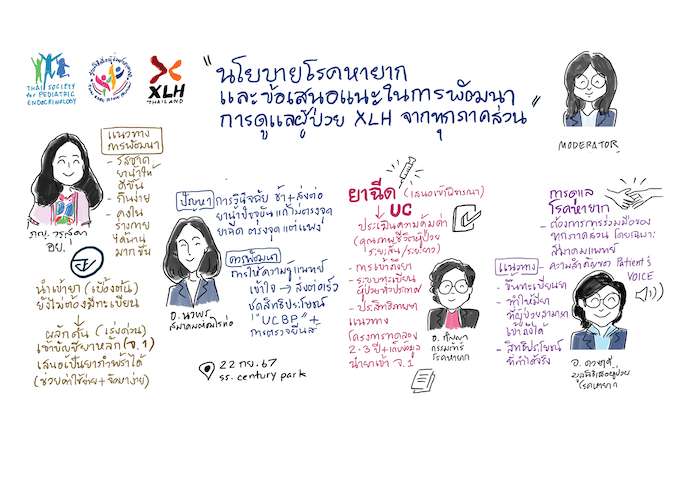 THAI SOCIETY
for PEDIATRIC
ENDOCRINOLOGY
XLH
THAILAND
"นโยบายโรคหายาก
และข้อเสนอแนะในการพัฒนา
การดูแลผู้ป่วย XLH จากทุกภาคส่วน"
MODERATOR
แนวทาง
การพัฒนา
- รสชาติ
ยาน้ำให้
ดีขึ้น
- กินง่าย
- คงใน
ร่างกาย
ได้นาน
มากขึ้น
ภญ. วรสุดา
อย.
นำเข้ายา (เบื้องต้น)
ยังไม่ต้องมีทะเบียน
ผลักดัน (เร่งด่วน)
เข้าบัญชียาหลัก (จ.1)
เสนอเป็นยากำพร้าได้
(ช่วยค่าใช้จ่าย + จัดหาง่าย)
ปัญหา การวินิจฉัย ช้า + ส่งต่อ
ยาน้ำปัจจุบัน แก้ไม่ตรงจุด
ยาฉีด ตรงจุด แต่แพง
การพัฒนา
การให้ความรู้แพทย์
เข้าใจ → ส่งต่อเร็ว
ชุดสิทธิประโยชน์
"UCBP" +
การตรวจยีนส์
อ. นวพร
สมาคมต่อมไร้ท่อ
22 กย. 67
รร. century park
ยาฉีด (เสนอเข้าพิจารณา)
UC
ประเมินความคุ้มค่า
(คุณภาพชีวิตผู้ป่วย
ระยะสั้น/ระยะยาว)
- การเข้าถึงยา
- ระบบทะเบียน
ผู้ป่วยทั่วประเทศ
- ประสิทธิภาพยา
แนวทาง
โครงการทดลอง
2-3 ปี + เก็บข้อมูล
นำยาเข้า จ.1
อ. กัญญา
กรรมการ
โรคหายาก
การดูแล
โรคหายาก
- ต้องการการร่วมมือของ
ทุกภาคส่วน โดยเฉพาะ
สมาคมแพทย์
- ความสำคัญของ Patient's
VOICE
แนวทาง
- ขึ้นทะเบียนยา
- ทำให้มียา
ที่ผู้ป่วยสามารถ
เข้าถึงได้
- สิทธิประโยชน์
ที่ทำได้จริง
มูลนิธิเพื่อผู้ป่วย
โรคหายาก